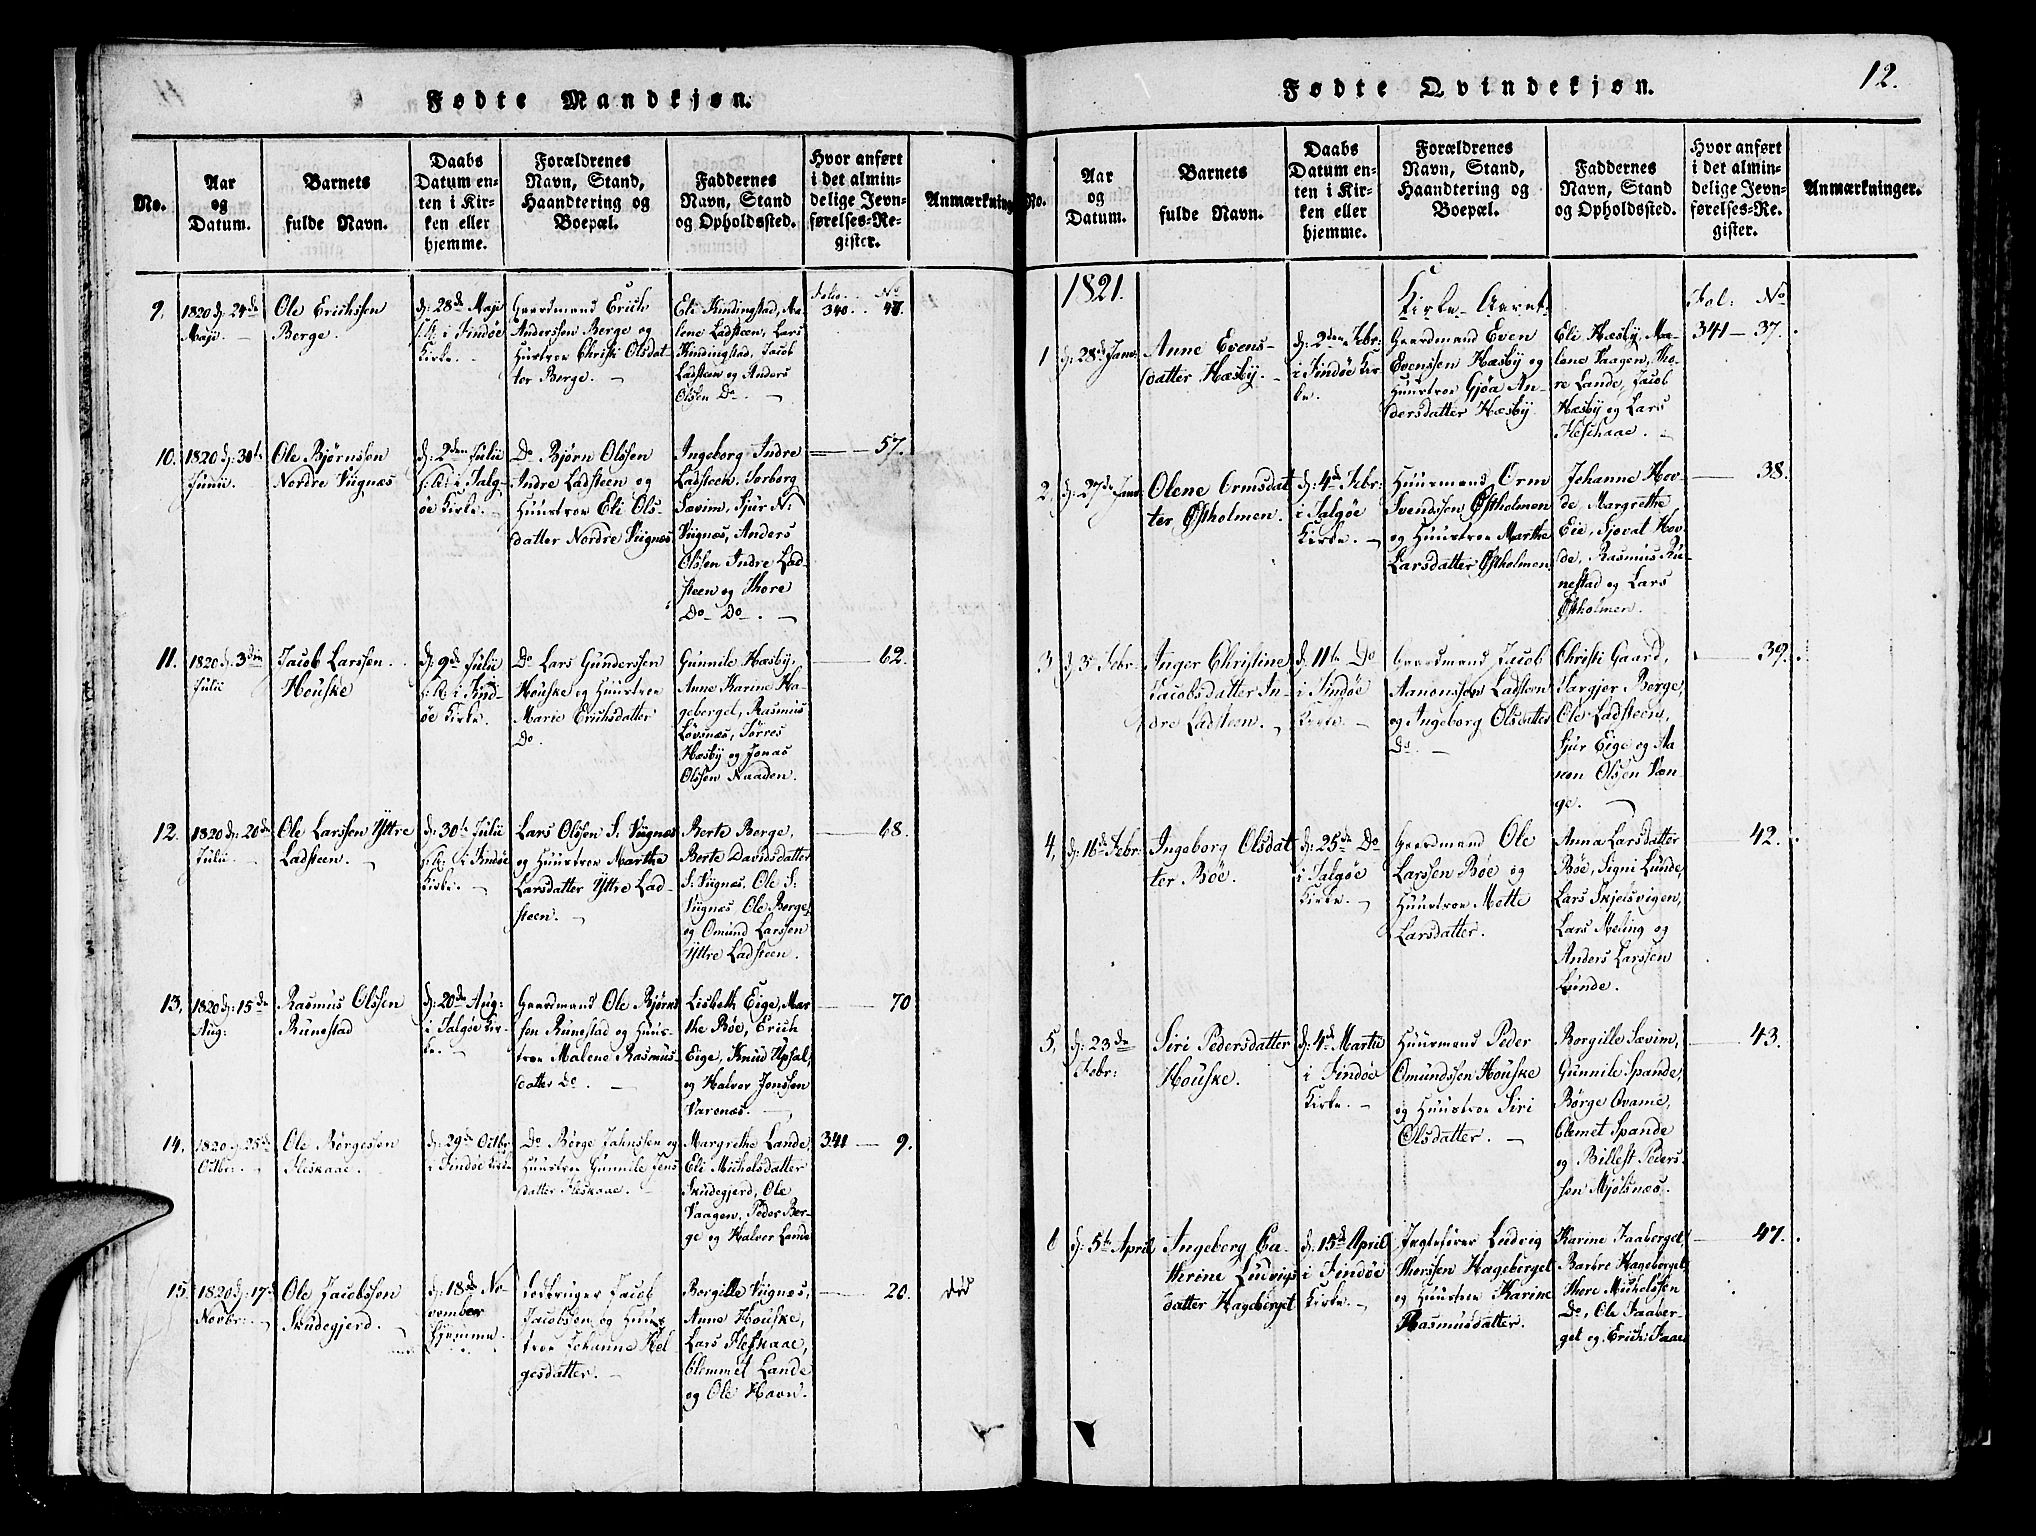 Fødte Mandkjøn.
No.
Aar
og
Datum.
Barnets
fulde Navn.
Daabs
Datum en-
ten i Kir-
ken eller
hjemme.
Forældrenes
Navn, Stand,
Haandtering og
Boepæl.
Faddernes
Navn, Stand
og Opholdssted.
Hvor anført
i det almin-
delige Jevn-
førelses-Re-
gister.
Anmærkning
9.
1820 d: 24de
Maji
Ole Erichsen
Berge.
d: 28de Maji
i Findøe
Kirke.
Gaardmand Erich
Anderssen Berge og
Huustroe Christi Olsdat-
ter Berge.
Eli Kindingstad, Ma-
lene Ladsteen, Lars
Kindingstad, Jacob
Ladsteen og Anders
Olsen Do.
Folio. No
340. 47.
10.
1820 d: 30te
Junii
Ole Bjørnssen
Nordre Viignæs
d: 2den Julii
i Talg-
øe Kirke.
Do Bjørn Olssen
Andre Ladsteen og
Huustroe Eli Ols-
datter Nordre Viignæs
Ingeborg Indre
Ladsteen, Torborg
Sævim, Sjur N:
Viignæs, Anders
Olssen Indre Lad-
steen og Thore
Do Do.
57.
11.
1820 d: 3die
Julii
Jacob Larssen
Houske
d: 9de Julii
i Find-
øe Kirke.
Do Lars Gunderssen
Houske og Huustroe
Marie Erichsdatter
Do.
Gunnile Hæsby,
Anne Karine Ha-
geberget, Rasmus
Løvsnæs, Tørres
Hæsby og Jonas
Olssen Naaden.
62.
12.
1820 d: 20de
Julii
Ole Larssen Yttre
Ladsteen.
d: 30te Julii
i Findøe
Kirke.
Lars Olssen S. Viignæs
og Huustroe Marthe
Larsdatter Yttre Lad-
steen.
Berte Berge,
Berte Davidsdatter
S. Viignæs, Ole S:
Viignæs, Ole Berge
og Omund Larssen
Yttre Ladsteen.
68.
13.
1820 d: 15de
Aug:
Rasmus Olssen
Runestad
d: 20de Aug:
i Talgøe Kir-
ke.
Gaardmand Ole Bjørns
sen Runestad og Huus-
troe Malene Rasmus-
datter Do.
Lisbeth Eige, Mar
the Bøe, Erich
Eige, Knud Upsal,
og Halvor Jonssen
Varenæs.
70
14.
1820 d: 25de
Octbr.
Ole Børgessen
Fleskaae.
d: 29de Octbr.
i Findøe Kirke
Do Børge Jahnssen og
Huustroe Gunnile Jens
datter Fleskaae.
Margrethe Lande,
Eli Michelsdatter
Skudegjerd, Ole
Vaagen, Peder Ber-
ge og Halvor Lande
341 9.
15.
1820 d: 17de
Novbr:
Ole Jacobssen
Skudegjerd.
d: 18de No-
vember
hjemme.
Jordbruger Jacob
Jacobsen og Huus
troe Johanne Hel
gesdatter.
Borgille Viignæs,
Anne Houske,
Lars Fleskaae,
Clemmet Lande
og Ole Havn.
20.
død
Fødte Qvindekjøn.
12.
No.
Aar
og
Datum.
Barnets
fulde Navn.
Daabs
Datum en-
ten i Kir-
ken eller
hjemme.
Forældrenes
Navn, Stand,
Haandtering og
Boepæl.
Faddernes
Navn, Stand
og Opholdsted.
Hvor anført
i det almin-
delige Jevn-
førelses-Re-
gister.
Anmærkninger.
1821.
Kirke-Aaret.
Fol: No
1
d: 28de Janr:
Anne Evens-
datter Hæsby.
d: 2den Febr:
i Findøe Kir-
ke.
Gaardmand Even
Evenssen Hæsby og
Huustroe Gjøa An-
dersdatter Hæsby
Eli Hæsby, Ma-
lene Vaagen, Tho-
re Lande, Jacob
Hæsby og Lars
Fleskaae.
341 — 37.
2.
d: 27de Janr:
Olene Ormsdat
ter Østholmen.
d: 4de Febr:
i Talgøe
Kirke.
Huusmand Orm
Svendssen Østholmen
og Huustroe Marthe
Larsdatter Østholmen
Johanne Hov-
de, Margrethe
Eie, Sjovat Hov-
de, Rasmus Ru-
nestad og Lars
Østholmen.
38.
3
d: 3die Febr:
Inger Christine
Jacobsdatter In-
dre Ladsteen.
d: 11te Do
i Findøe
Kirke.
Gaardmand Jacob
Aanonssen Ladsteen
og Ingeborg Olsdatter
Do.
Christi Gaard,
Targjer Berge,
Ole Ladsteen,
Sjur Eige og Aa-
non Olsen Væn-
ge.
39.
4,
d: 16de Febr:
Ingeborg Olsdat
ter Bøe.
d: 25de Do
i Talgøe
Kirke.
Gaardmand Ole
Larssen Bøe og
Huustroe Mette
Larsdatter.
Anna Larsdatter
Bøe, Signi Lunde,
Lars Skjelsvigen,
Lars Meling og
Anders Larssen
Lunde.
42.
5,
d: 23de
Febr:
Siri Pedersdatter
Houske.
d: 4de Martii
i Findøe
Kirke.
Huusmand Peder
Omundssen Houske
og Huustroe Siri
Olsdatter.
Borgille Sævim,
Gunnile Spande,
Børge Qvame,
Clemet Spande
og Billest Peders-
sen Mjølsnæs.
43.
6
d: 5te April
Ingeborg Ca-
therine Ludvigs
datter Hageberget
d: 15de April
i Findøe
Kirke.
Jægtefører Ludvig
Thorssen Hageberget
og Huustroe Karine
Rasmusdatter.
Karine Faaberget,
Barbre Hageberget,
Thore Michelssen
Do, Ole Faaber-
get og Erich Faae
47.